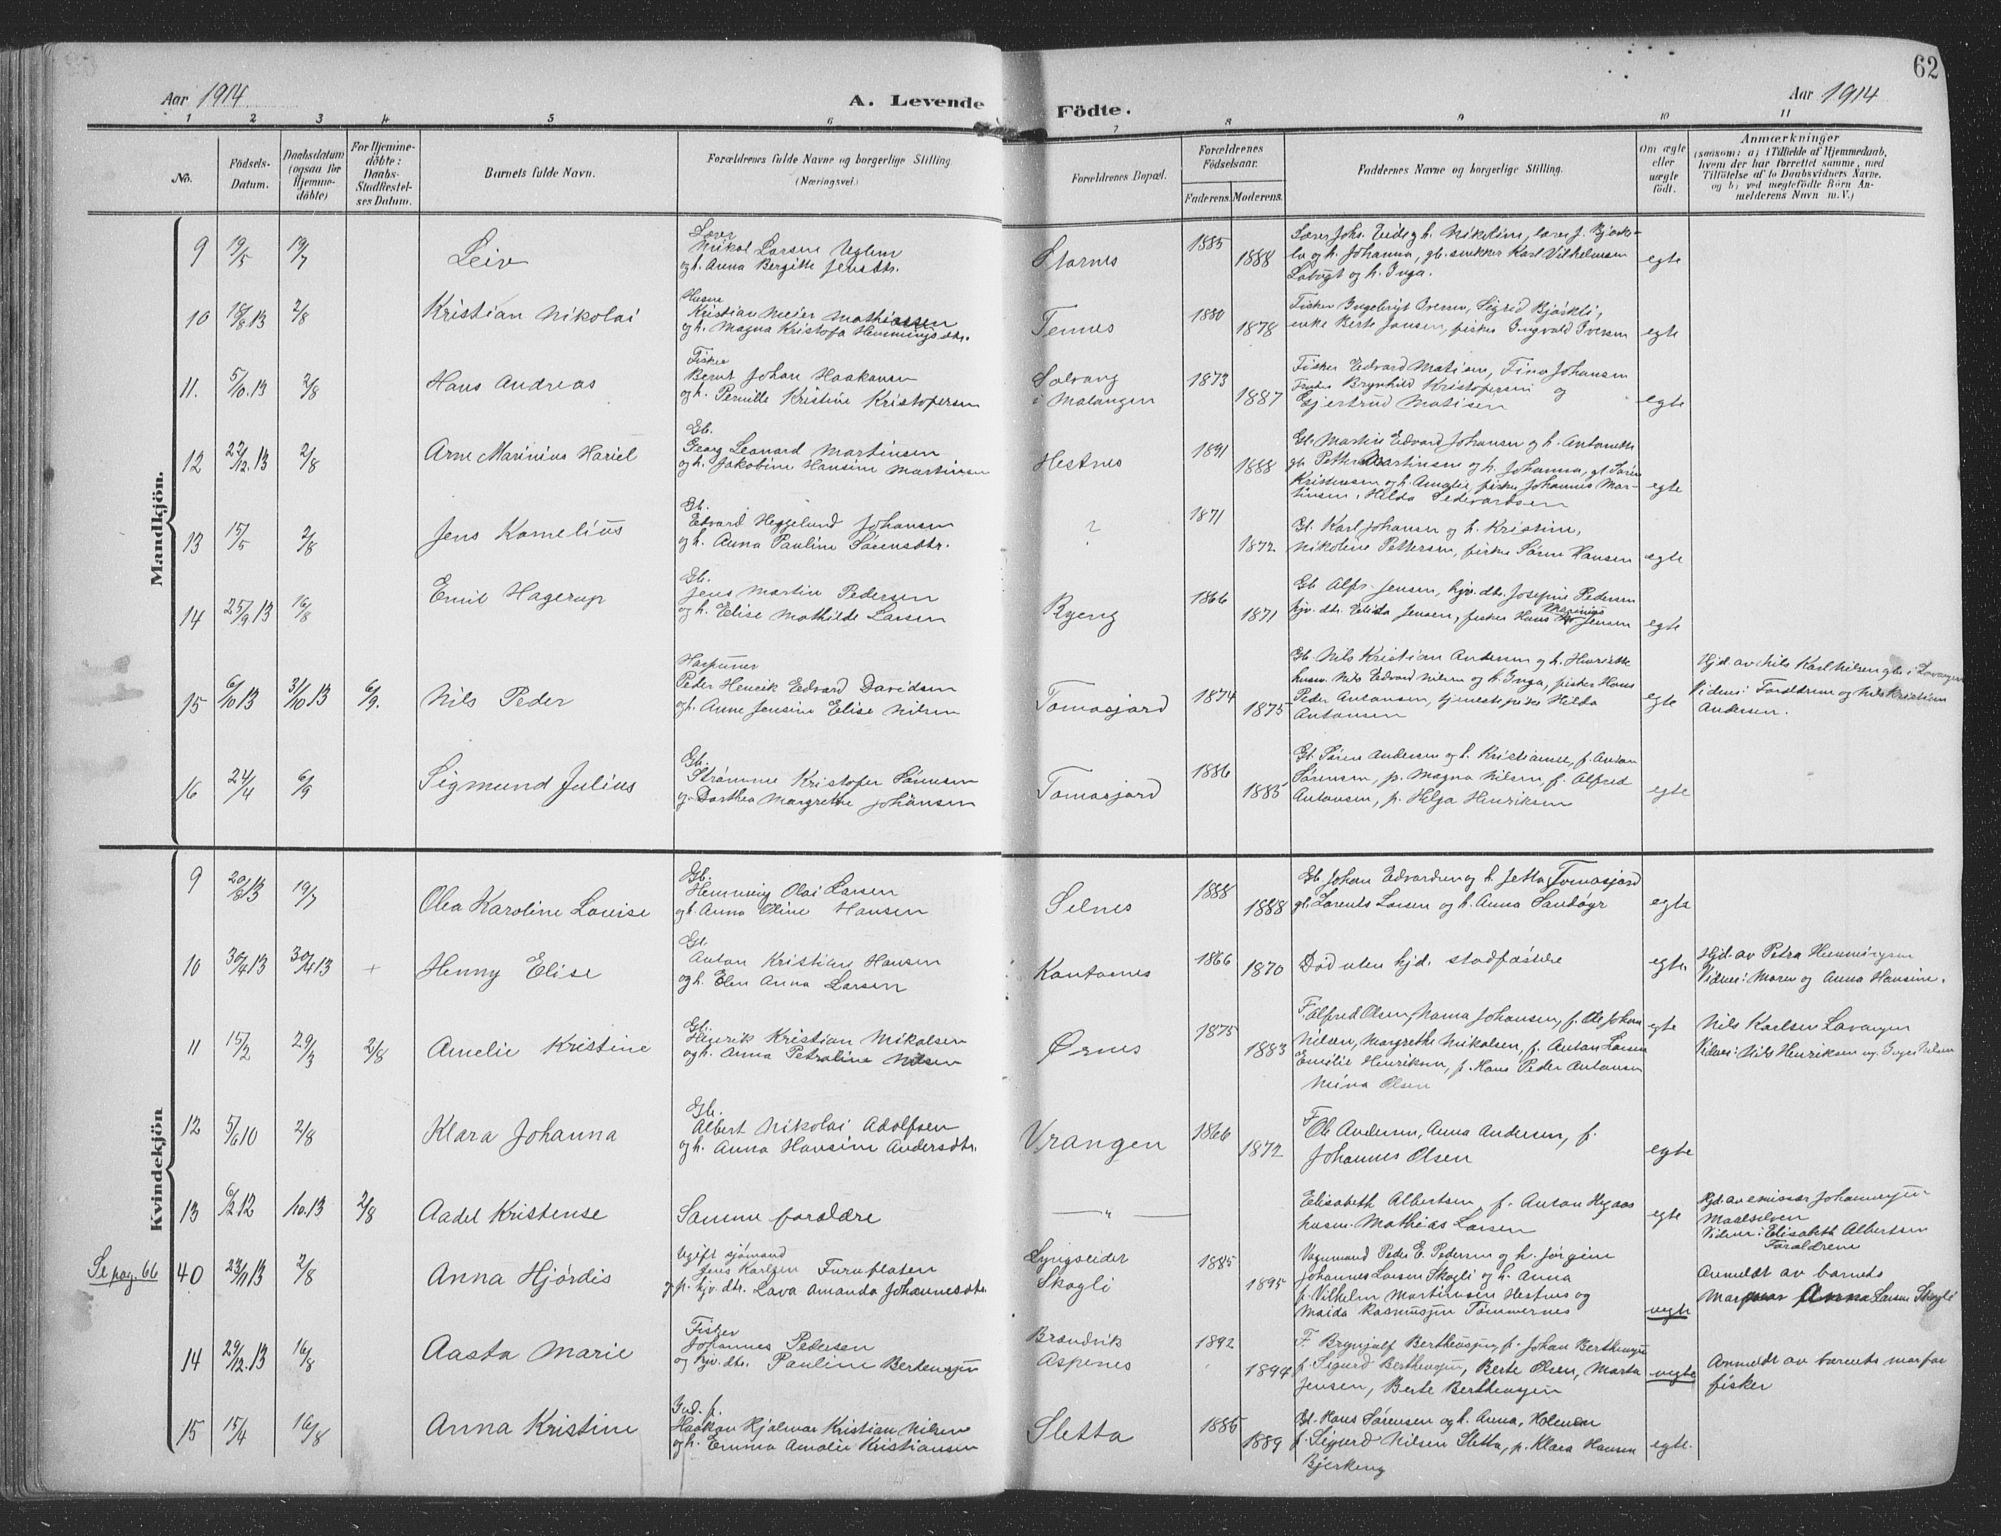 62
Aar 1914
A. Levende Födte.
Aar 1914
1 2 3 4 5 6 7 8 9 10 11
No.
Födsels-
Datum.
Daabsdatum
(ogsaa for
Hjemme-
döbte)
For Hjemme-
döbte:
Daabs-
Stadfæstel-
ses Datum.
Barnets fulde Navn.
Forældrenes fulde Navne og borgerlige Stilling
(Næringsvei.)
Forældrenes Bopæl.
Forældrenes
Födselsaar.
Faderens. Moderens.
Faddernes Navne og borgerlige Stilling.
Om ægte
eller
uægte
födt.
Anmærkninger
(saasom: a) i Tilfælde af Hjemmedaab,
hvem der har forrettet samme, med
Tilföielse af to Daabsvidners Navne.
og b) ved uægtefödte Börn An-
melderens Navn m. V.)
Mandkjön.
9 19/5 19/7 Leiv
Lærer
Nikol Larsen Uglem
og h. Anna Bergitte Jensdtr.
Starnes 1885 1888
Lærer Johs. Eids g h. Nikoline, lærer J. Bjørk-
og h. Johanna, gb. snekker Karl Vilhelmsen
Lavogt og h. Inga.
egte
10 18/8 13 2/8 Kristian Nikolai
Kristian Meier Mathiassen
og h. Magna Kristofa Hemmingsdtr.
Tennes 1880 1878
Fisker Ingebrigt Iversen, Sigrid Bjørkli,
enke Berte Jensen, fisker Ingvald Iversen
egte
11. 5/10.13 2/8 Hans Andreas
Fisker
Bernt Johan Haakonsen
og h. Pernille Kristine Kristofersen
Solvang
i Malangen 1873 1887
Fisker Edvard Matisen, Fina Johansen
Brynhild Kristofersen og
Gjertrud Matisen
egte
12 22/12.13 2/8 Arne Marinius Hariel
Gb.
Georg Leonard Martinsen
og h. Jakobine Hansine Martinsen
Hestnes 1891 1888
Gb. Martin Edvard Johansen og h. Antonette
gb. Petter Martinsen og h. Johanna, gb. Søren
Kristensen og h. Amalie, fisker Johannes Mar-
tinsen, Hilda Sedvardsen
egte
13 15/5 2/8 Jens Kornelius
Gb.
Edvard Heggelund Johansen
og h. Anna Pauline Sørensdtr.
? 1871 1872
Gb. Karl Johansen og h. Kristine,
Nikoline Pettersen, fisker Søren Hansen
ægte
14 25/9 13 16/8 Emil Hagerup
Gb.
Jens Martin Pedersen
og h. Elise Mathilde Larsen
Ryeng 1866 1871
Gb. Alfr. Jensen, hjv. dtr. Josefine Pedersen
hjv. dtr. Elida Jensen, fisker Hans Marinius Jensen
egte
15 6/10 13 31/10 13 6/9. Nils Peder
Peder Henrik Edvard Davidsen
og h. Anne Jensine Elise Nilsen
Tomasjord 1874 1875
Gb. Nils Kristian Andersen og h. Henriette
husm. Nils Edvard Nilsen og h. Inga, fisker Hans
Peder Antonsen, tjenestepike Hilda
Antonsen
egte
Hjd. av Nils Karl Nilsen gbr. i Lavangen
Vidner: Forældrene og Nils Kristian
Andersen.
16 24/4 6/9 Sigmund Julius
Gb.
Strømme Kristofer Sørensen
og Dorthea Margrethe Johansen
Tomasjord 1886 1885
Gb. Søren Andersen og h. Kristianne, f. Anton
Sørensen, p. Magna Nilsen, f. Alfred
Antonsen, p. Helga Henriksen
egte
Kvindekjön
9 20/8 13 19/7 Olea Karoline Lovise
Gb.
Hemming Olai Larsen
og h. Anna Oline Hansen
Selnes 1888 1888
Gb. Johan Edvardsen og h. Jetta, Tomasjord
gb. Lorents Larsen og h. Anna Sandøyr
egte
10 30/4 13 30/4 13 + Henny Elise
Gb.
Anton Kristian Hansen
og h. Elen Anna Larsen
Kantornes 1866 1870
Død uten hjd. stadfæstelse
egte
Hjd. av Petra Hemmingsen
Vidner: Moren og Anna Hansine.
11 15/2 29/3 2/8 Amelie Kristine
Gb.
Henrik Kristian Mikalsen
og h. Anna Petroline Nilsen
Ørnes 1875 1883
F. Alfred Olsen, Nanna Johansen, f. Ole Johan
Nilsen, Margrethe Mikalsen, f. Anton Larsen
Emilie Henriksen, f. Hans Peder Antonsen
Mina Olsen
egte
Nils Karlsen Lavangen
Vidner: Nils Henriksen og Inger Nilsen
12 5/6 10 2/8 Klara Johanna
Gb.
Albert Nikolai Adolfsen
og h. Anna Hansine Andersdtr.
Vrangen 1866 1872
F. Ole Andersen, Anna Andersen, f.
Johannes Olsen
egte
13 6/2 12 2/8 Aadel Kristense
Samme forældre
— „ —
Elisabeth Albertsen, f. Anton Hegaas
husm. Mathias Larsen
egte
Hjd. av emissær Johannesen
Maalselven
Vidner: Elisabeth Albertsen
Forældrene
Se pag. 66
40 23/11 13 2/8 Anna Hjørdis
Ugift sjömand
Jens Karlsen Furuflaten
og p. hjv. dtr. Lava Amanda Johannesdtr.
Lyngseidet
Skogli 1885 1895
Vognmand Peder E. Pedersen og h. Jørgine
Johannes Larsen Skogli og h. Anna
f. Vilhelm Martinsen Hestnes og
Maida Rasmussen Tømmernes
uegte
Anmeldt av barnets
Mormor Anna Larsen Skogli
14 29/12.13 16/8 Aasta Marie
Fisker
Johannes Pedersen
og hjv. dtr. Pauline Bertensen
Brandvik
Aspenes 1892 1894
F. Brynjulf Bertheussen, f. Johan Bertheussen
f. Sigurd Bertheussen, Berte Olsen, Marta
Jensen, Berte Bertheussen
uegte
Anmeldt av barnets morfar
fisker
15 15/4 16/8 Anna Kristine
Haakon Hjalmar Kristian Nilsen
og h. Emma Amalie Kristiansen
Sletta 1885 1889
Gb. Hans Sørensen og h. Anna, Holmen
f. Sigurd Nilsen Sletta, p. Klara Hansen
Bjerkeng
egte.